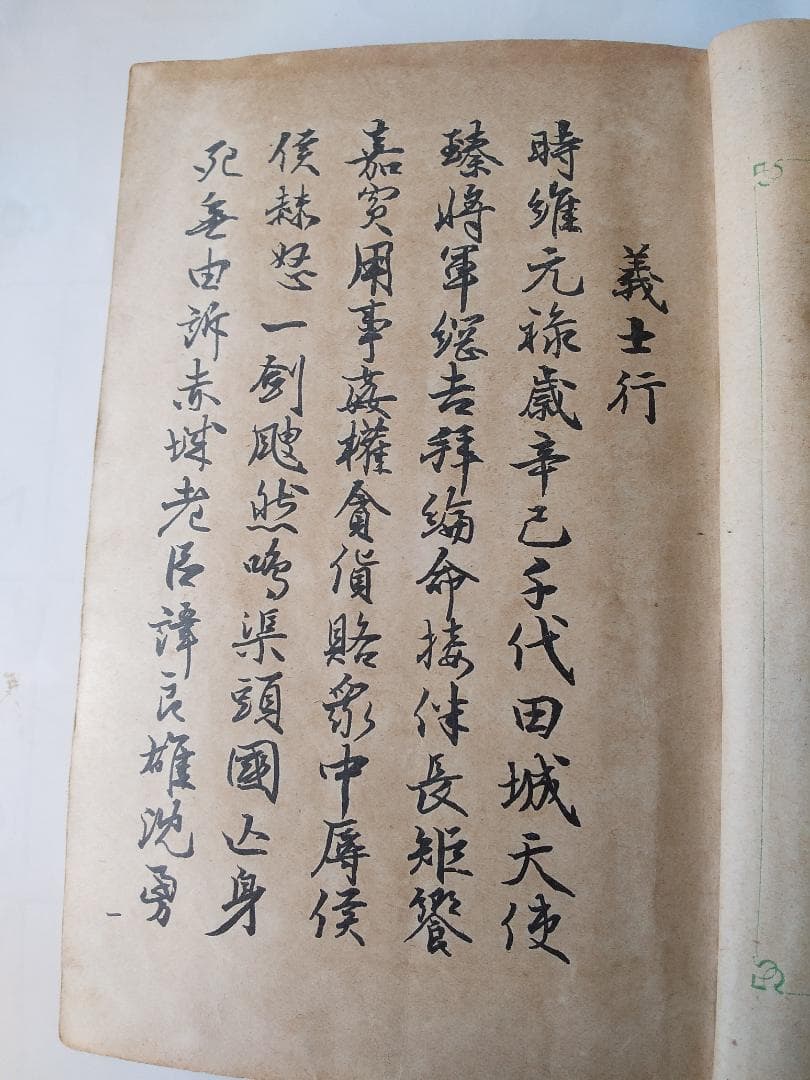 義士行
時維元祿歲辛巳千代田城天使
臻將軍綱吉拜綸命接伴長矩饗
嘉賓用事姦權貪貨賂衆中辱侯
侯赫怒一劍颯然鳴渠頭國亡身
死無由訴赤城老臣諱良雄沈勇
一